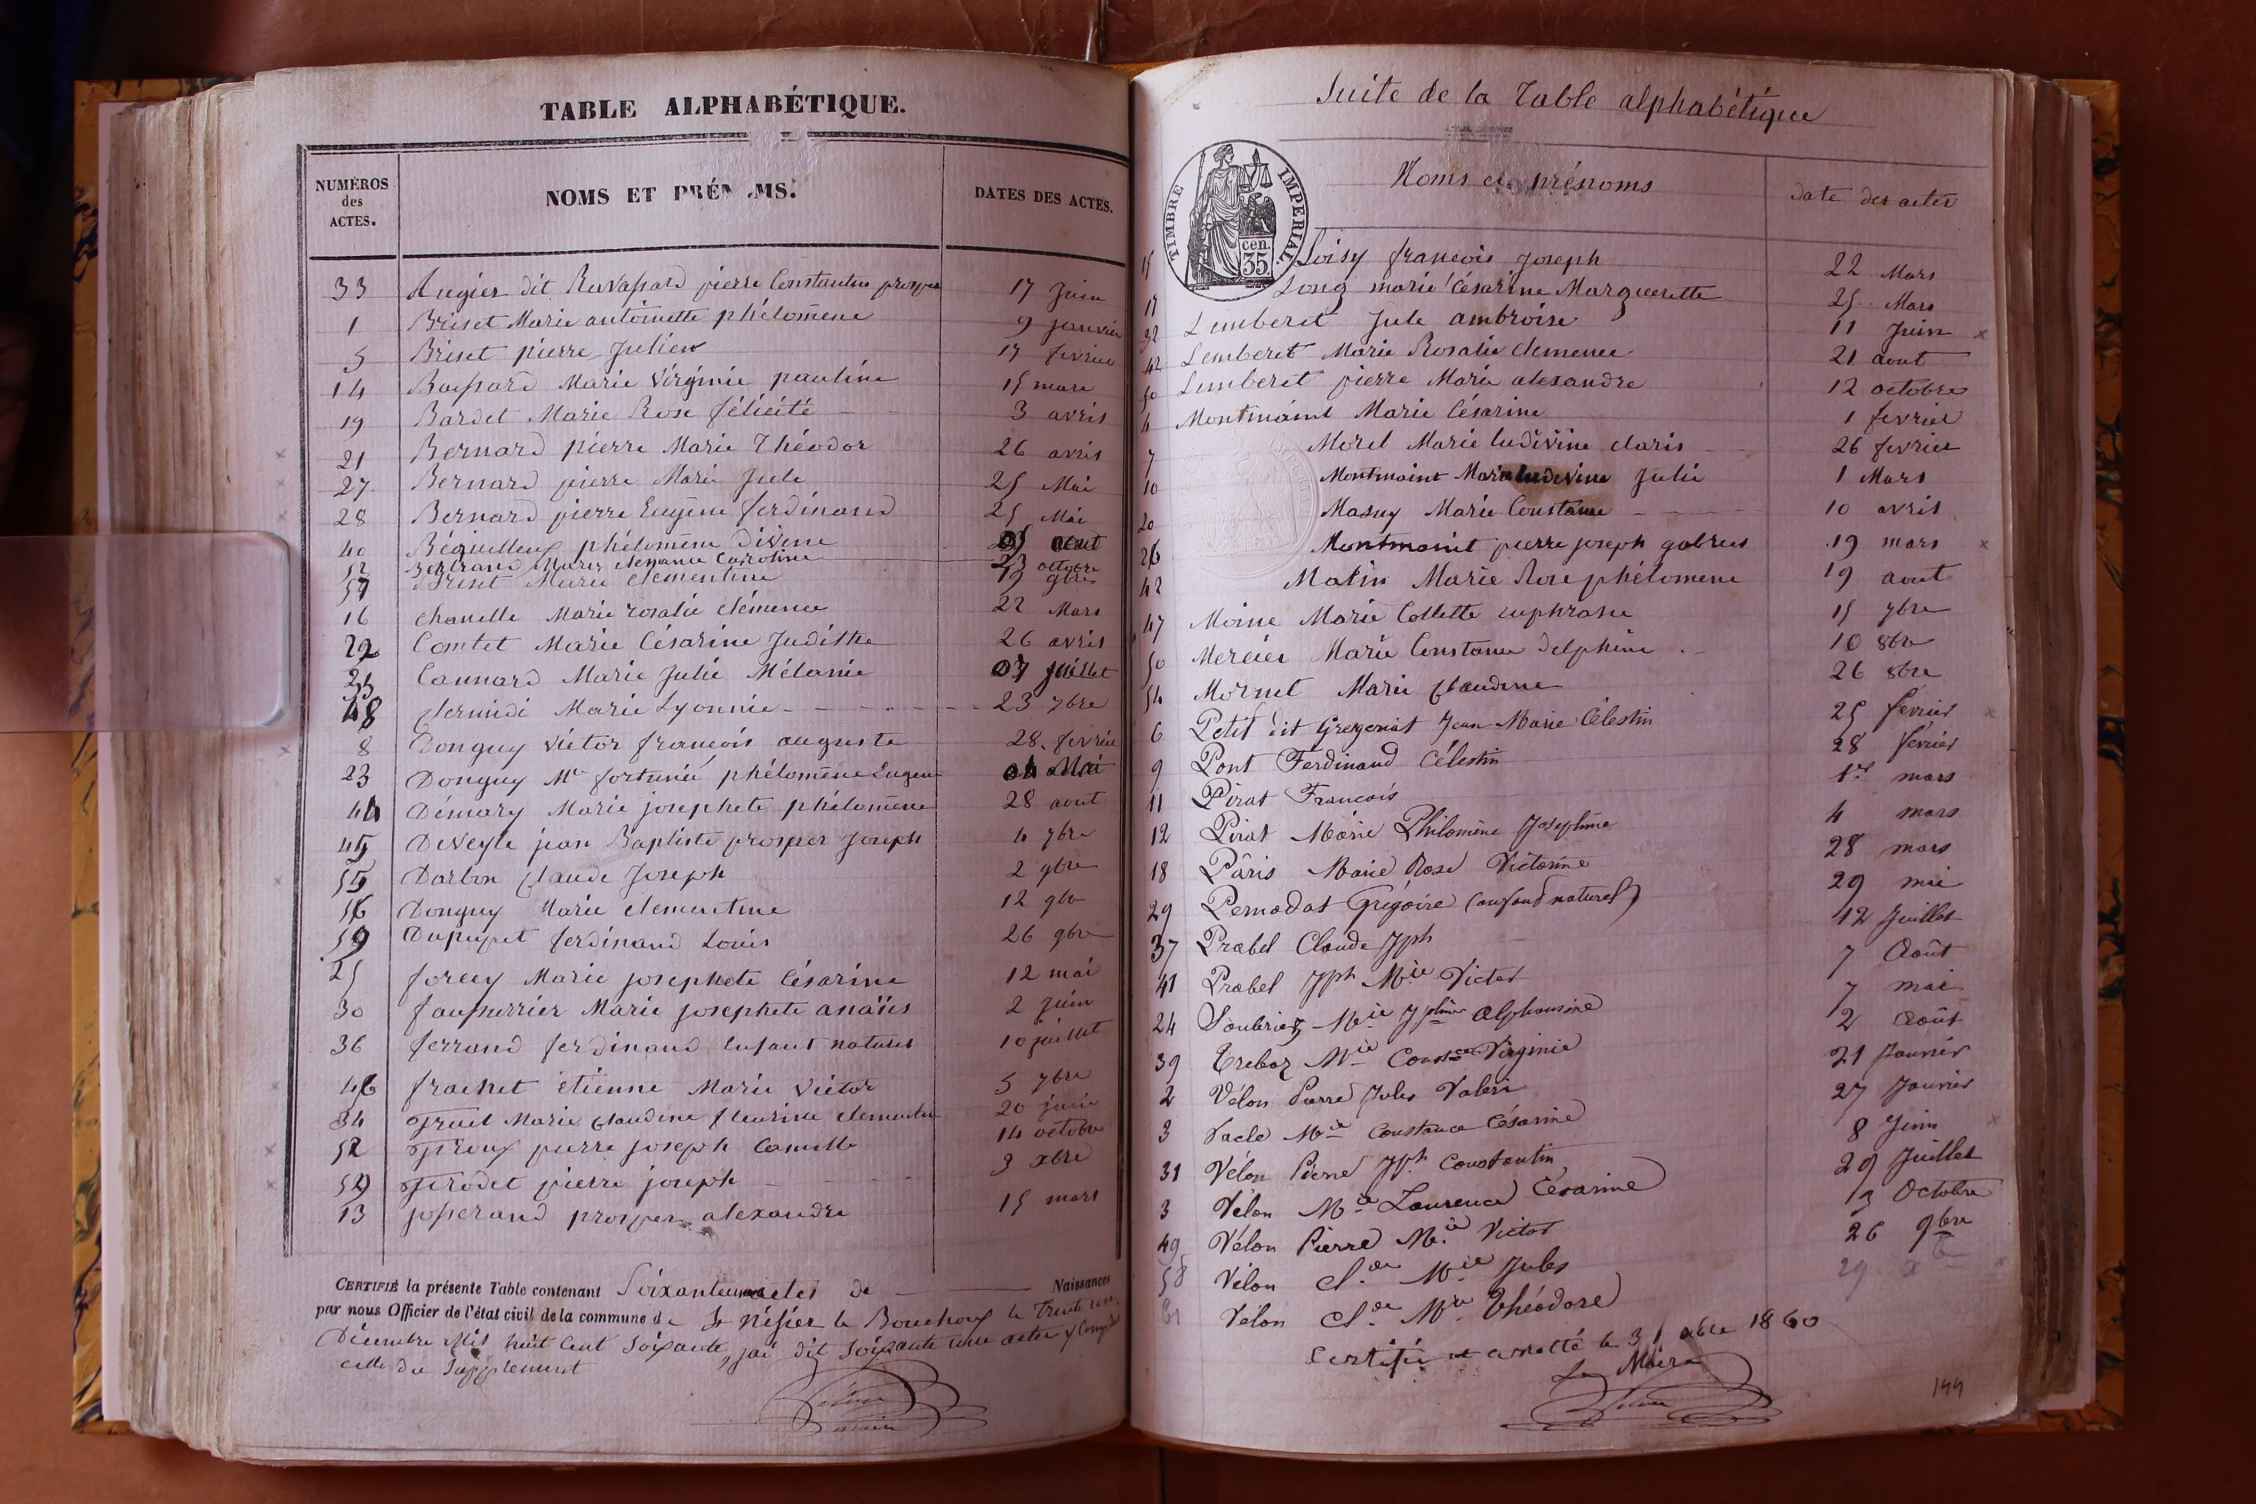 TABLE ALPHABÉTIQUE.
NUMÉROS des ACTES. NOMS ET PRÉN MS. DATES DES ACTES.
33 Augier dit Ravassard pierre Constantin prosper 17 Juin
1 Briset Marie antoinette phélomene 9 janvier
5 Briset pierre Julien 17 fevrier
14 Marie Virginie pauline 15 mars
19 Bardet Marie Rose félicité 3 avris
21 Bernard pierre Marie Théodor 26 avris
27 Bernard pierre Marie Jule 25 Mai
28 Bernard pierre Eugene ferdinand 25 Mai
40 phélomene Divine aout
52 Marie Caroline 23 octobre
57 Briset Marie clementine 19 9bre
16 chanelle Marie rosalie clémence 22 Mars
22 Comtet Marie Césarine Judithe 26 avris
Cannard Marie Julie Mélanie 07 juillet
48 Marie Lyonnie 23 7bre
8 Donguy victor francois auguste 28 fevrier
23 Donguy Mie fortunée phélomene Eugen Mai
44 Démary Marie josephete phélomene 28 aout
45 DeVeyle jean Baptiste prosper Joseph 4 7bre
55 Darbon claude Joseph 2 9bre
56 Donguy Marie clementine 12 9bre
59 Dupupet ferdinand Louis 26 9bre
25 forey Marie josephete Césarine 12 mai
30 Marie josephete anaïs 2 juin
36 ferrand ferdinand enfant naturel 10 juillet
46 frachet etienne Marie victor 5 7bre
34 Marie claudine fleurine clementine 20 juin
52 Giroux pierre joseph Camille 14 octobre
59 Girodet pierre joseph 3 xbre
13 josserand prosper alexandre 15 mars
CERTIFIÉ la présente Table contenant Soixante une actes de Naissances
par nous Officier de l'état civil de la commune de St Nésier le Bouchoux le Trente un
Décembre Mil huit Cent Soixante, jai dit soixante une actes y Compris
celle du Supplement
Suite de la Table alphabétique
TIMBRE IMPERIAL.
35 cen.
Noms et prénoms date des actes
15 Loisy francois joseph 22 Mars
17 Long marie Césarine Marguerette 25 Mars
32 Lemberet Jule ambroise 11 Juin
42 Lemberet Marie Rosalie clemence 21 aout
50 Lemberet pierre Marie alexandre 12 octobre
4 Montmaint Marie Césarine 1 fevrier
7 Morel Marie ludivine claris 26 fevrier
10 Montmaint Marie ludivine Julie 1 Mars
20 Masuy Marie Constance 10 avris
26 Montmaint pierre joseph gabriel 19 mars
42 Matin Marie Rose phélomene 19 aout
47 Moine Marie Collette euphrasie 15 7bre
50 Mercier Marie Constance Delphine 10 8bre
54 Mornet Marie claudine 26 8bre
6 Petit dit Gregoriat Jean Marie Célestin 25 fevrier
9 Pont Ferdinand Célestin 28 fevrier
11 Pirat Francois 1er mars
12 Pirat Marie Philomène Joséphine 4 mars
18 Pâris Marie Rose Victorine 28 mars
29 Pernodat Grégoire (enfant naturel) 29 mai
37 Prabel Claude Jph 12 Juillet
41 Prabel Jph Mie Victor 7 Août
24 Soubriez Mie Jphine Alphonsine 7 mai
39 Treboz Mie Constce Virginie 2 Août
2 Vélon Pierre Jules Valéri 21 Janvier
3 Vacle Mie Constance Césarine 27 Janvier
31 Vélon Pierre Jph Constantin 8 Juin
3 Vélon Mie Laurence Césarine 29 Juillet
49 Vélon Pierre Mie Victor 13 Octobre
58 Vélon Cl.de Mie Jules 26 9bre
61 Vélon Cl.de Mie Théodore 29
Certifié et arretté le 31 xbre 1860
Le Maire
144